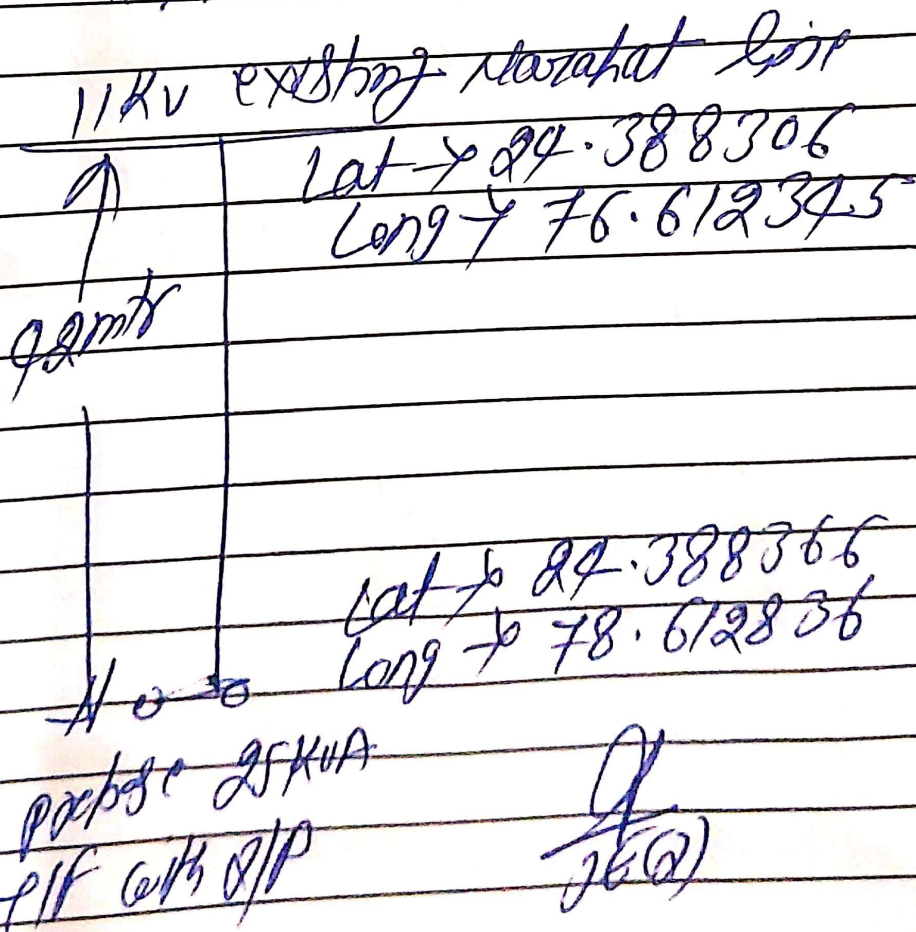 11Kv existing Narahat line
Lat → 24.388306
Long → 76.612345
Lat → 24.388366
Long → 78.612836
propose 25KVA